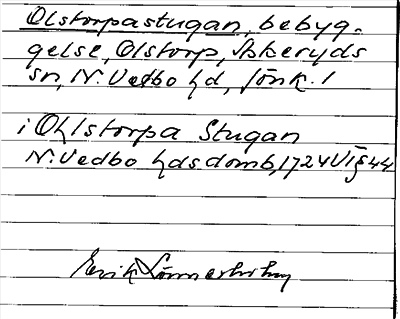 Olstorpastugan, bebyg-
gelse, Olstorp, Askeryds
sn, N. Vedbo hd, Jönk. l
i Ohlstorpa Stugan
N. Vedbo hds domb, 1724 VI § 44
Erik